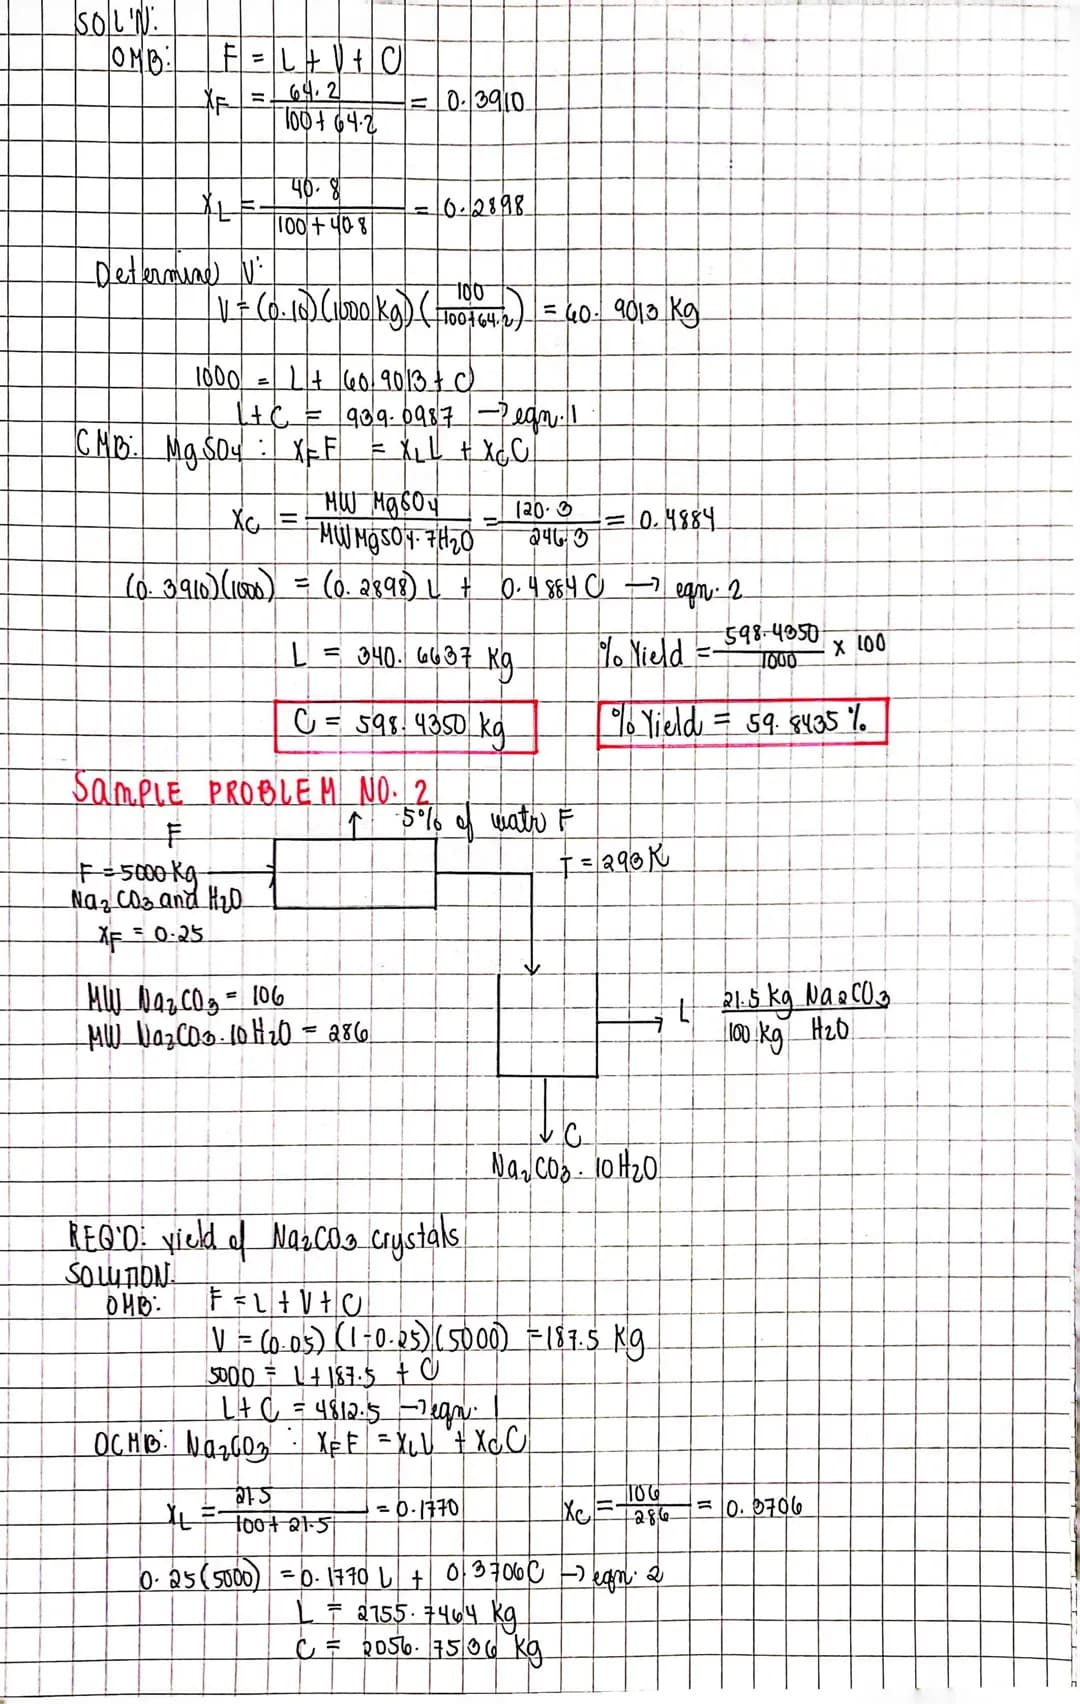 SOL'N:
OMB: F = L + V + C
XF = 64.2 / 100 + 64.2 = 0.3910
XL = 40.8 / 100 + 40.8 = 0.2898
Determine V:
V = (0.10)(1000 kg)(100 / 100+64.2) = 60.9013 kg
1000 = L + 60.9013 + C
L + C = 939.0987 → eqn. 1
CMB: MgSO4 : XFF = XLL + XCC
XC = MW MgSO4 / MW MgSO4·7H2O = 120.3 / 246.3 = 0.4884
(0.3910)(1000) = (0.2898) L + 0.4884 C → eqn. 2
L = 340.6637 kg
% Yield = 598.4350 / 1000 x 100
C = 598.4350 kg
% Yield = 59.8435 %
SAMPLE PROBLEM NO. 2
F
↑ 5% of water F
F = 5000 kg
T = 293 K
Na2CO3 and H2O
XF = 0.25
MW Na2CO3 = 106
MW Na2CO3·10H2O = 286
L 21.5 kg Na2CO3 / 100 kg H2O
C
Na2CO3·10H2O
REQ'D: yield of Na2CO3 crystals
SOLUTION.
OMB: F = L + V + C
V = (0.05)(1-0.25)(5000) = 187.5 kg
5000 = L + 187.5 + C
L + C = 4812.5 → eqn. 1
OCMB: Na2CO3 : XFF = XLL + XCC
XL = 21.5 / 100 + 21.5 = 0.1770
XC = 106 / 286 = 0.3706
0.25(5000) = 0.1770 L + 0.3706C → eqn. 2
L = 2755.7464 kg
C = 2056.7536 kg